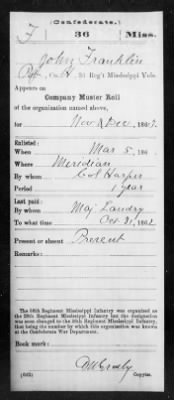 (Confederate.)
F 36 Miss.
John Franklin
Pvt, Co. H, 36 Reg't Mississippi Vols.
Appears on
Company Muster Roll
of the organization named above,
for Nov & Dec, 186
Enlisted:
When Mar 5, 186
Where Meridian
By whom Col Harper
Period 1 year
Last paid:
By whom Maj. Landry
To what time Oct 31, 1862
Present or absent Present
Remarks:
The 36th Regiment Mississippi Infantry was organized as
Regiment Mississippi Infantry has the designation
was soon changed to the 36th Regiment Mississippi Infantry,
that being the number by which this organization was known
at the Confederate War Department.
Book mark:
(642) Copyist.